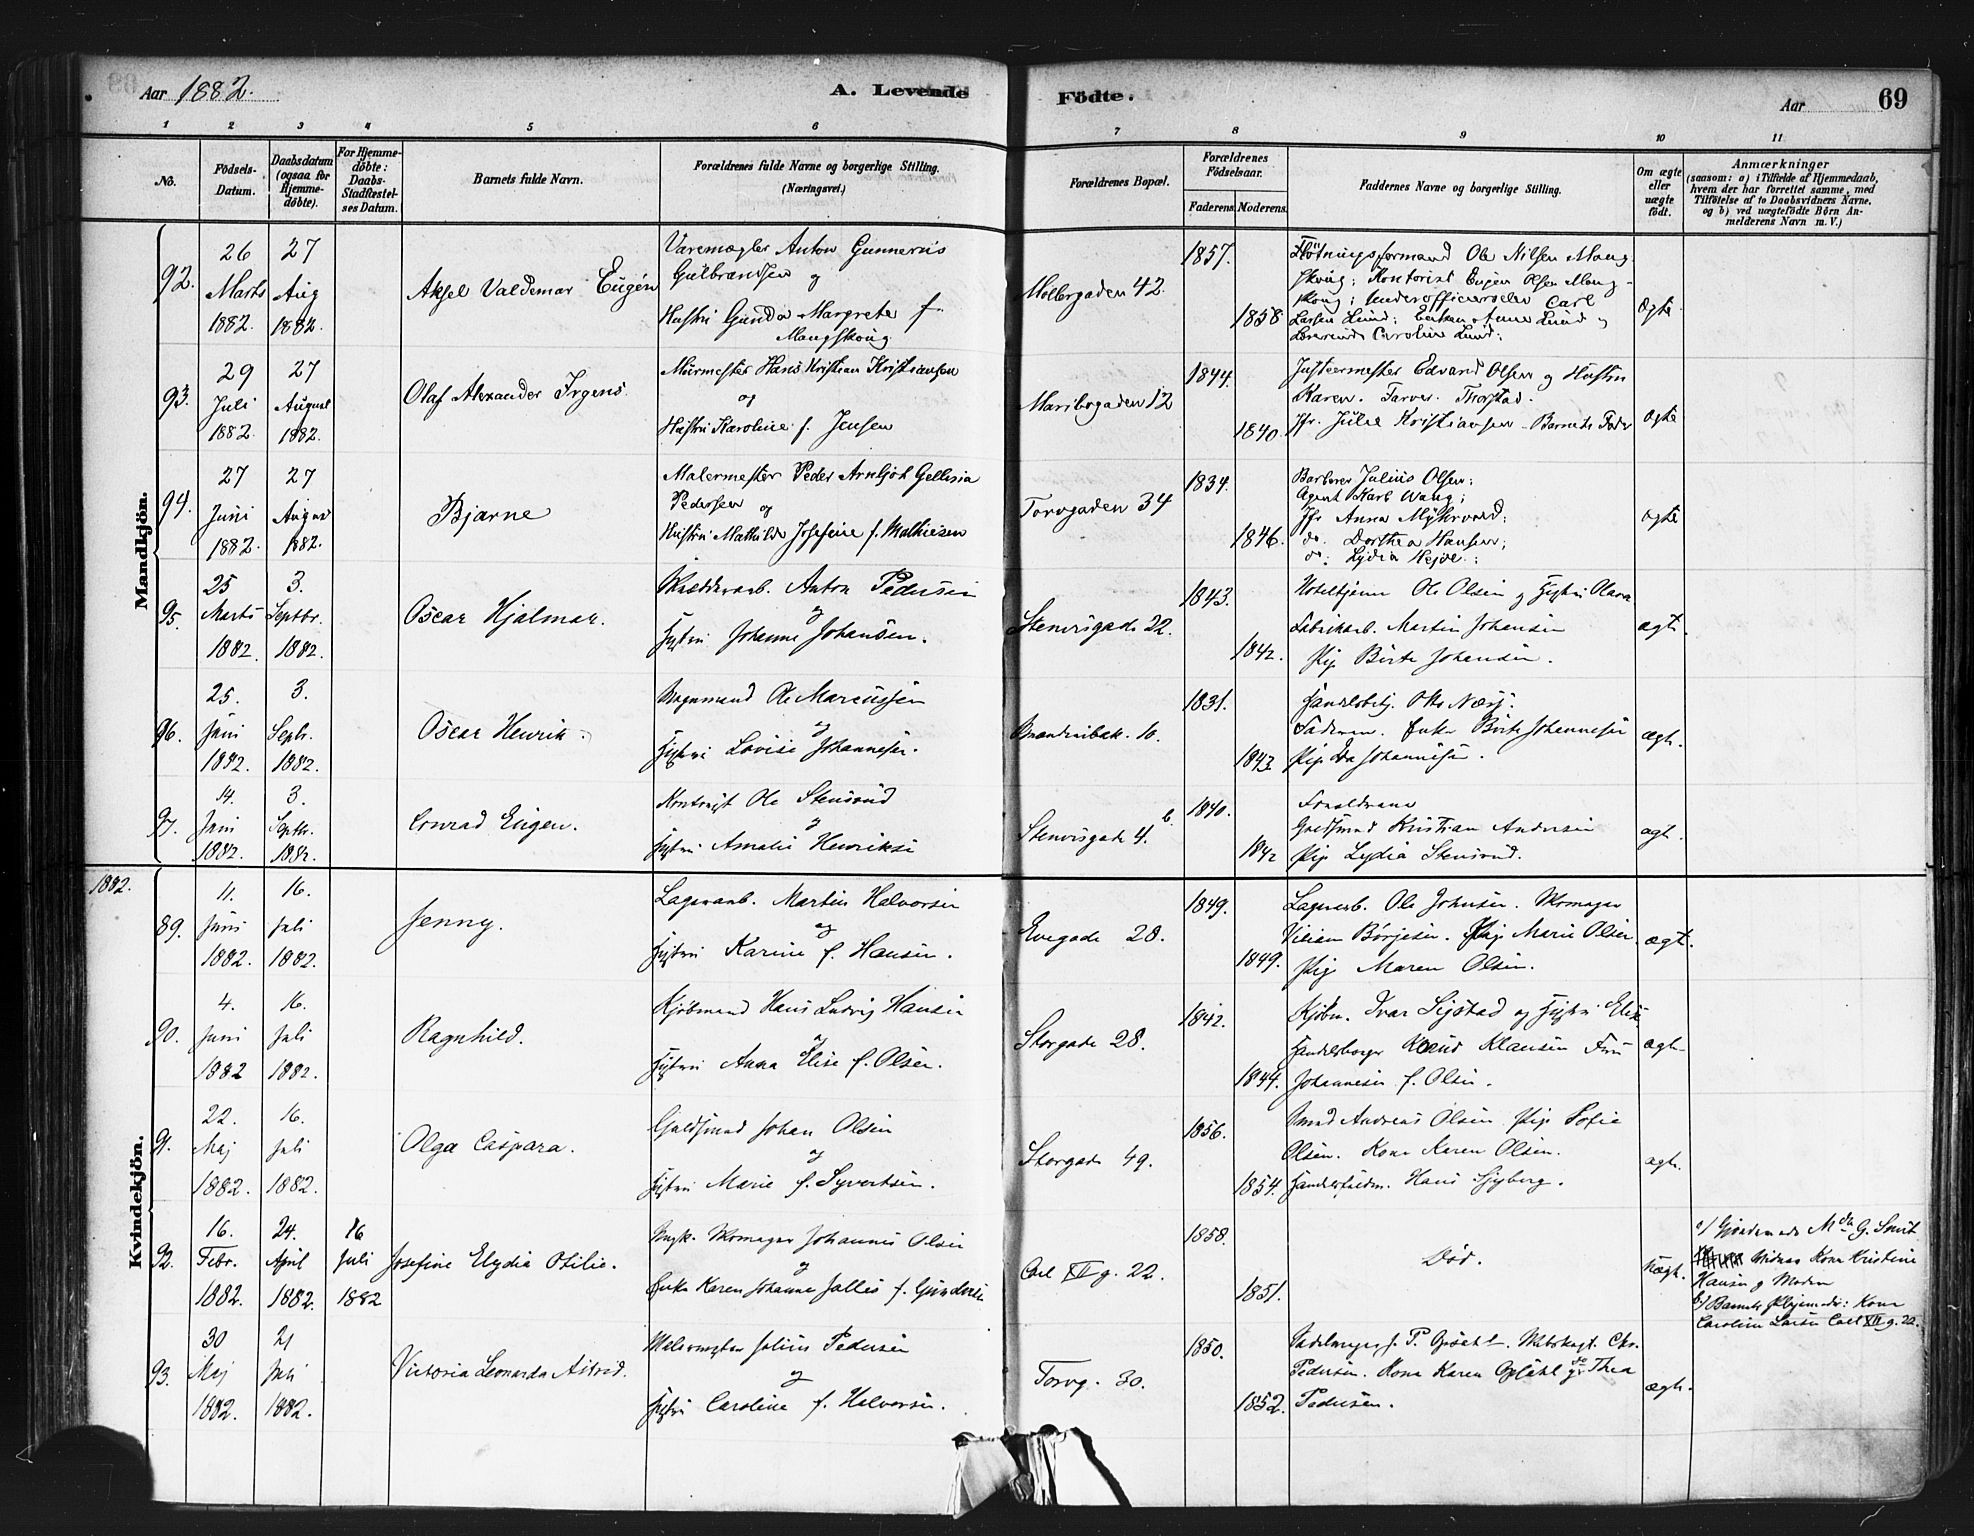 Aar 1882.
A. Levende
Födte.
Aar
69
1 2 3 4 5 6 7 8 9 10 11
No.
Födsels-
Datum.
Daabsdatum
(ogsaa for
Hjemme-
döbte).
For Hjemme-
döbte:
Daabs-
Stadfæstel-
ses Datum.
Barnets fulde Navn.
Forældrenes fulde Navne og borgerlige Stilling.
(Næringsvei.)
Forældrenes Bopæl.
Forældrenes
Födselsaar.
Faderens.
Moderens.
Faddernes Navne og borgerlige Stilling.
Om ægte
eller
uægte
födt.
Anmærkninger
(saasom: a) i Tilfælde af Hjemmedaab,
hvem der har forrettet samme, med
Tilföielse af to Daabsvidners Navne,
og b) ved uægtefödte Börn An-
melderens Navn m.V.)
Mandkjön.
92.
26
Marts
1882.
27
Aug
1882.
Aksel Valdemar Eugén
Varemægler Anton Gunnerius
Gulbrandsen og
Hustru Gunda Margrete f.
Mangskoug
Møllergaden 42.
1857.
1858
Flötningsformand Ole Nilsen Mang-
skoug; Kontorist Eugen Olsen Mang-
skoug; Underofficerselev Carl
Larsen Lund; Enken Anne Lund og
Lærerinde Caroline Lund;
Ægte
93.
29
Juli
1882.
27
August
1882.
Olaf Alexander Irgens.
Murmester Hans Kristian Kristiansen
og
Hustru Karoline f. Jensen
Maribogaden 12
1844.
1840.
Justeermester Edvard Olsen og Hustru
Karen. Farver Thorstad.
Jfr. Julie Kristiansen Barnets Fader
Ægte
94.
27
Juni
1882.
27
August
1882.
Bjarne
Malermester Peder Arnljot Gellisia
Pedersen og
Hustru Mathilde Josefine f. Mathiesen
Torvgaden 34
1834.
1846.
Barberer Julius Olsen;
Agent Karl Wang;
Jfr Anna Myhrvord;
do. Dorthea Hansen;
do. Lydia Hejde.;
Ægte
95.
25
Marts
1882.
3.
Septbr.
1882.
Oscar Hjalmar.
Anton Pedersen
og
Hustru Johanne Johansen.
Stenersgade 22.
1843.
1842.
Ole Olsen og Hustru Olava
Fabrikarb. Martin Johansen
Pige Birte Johansen.
ægt.
96.
25.
Juni
1882.
3.
Septr.
1882.
Oscar Henrik.
Ole Marcussen
og
Hustru Lovise Johannesen.
10.
1831.
1843
Otto Næss.
Enke Birte Johannesen
Pige Johannesen.
ægt.
97.
14.
Juni
1882.
3.
Septbr.
1882.
Conrad Eugen.
Kontorist Ole Stensrud
og
Hustru Amalie Henriksen
Stenersgade 4. b.
1840.
1842
Forældrene
Guldsmed Kristian Andersen
Pige Lydia Stensrud.
ægt.
1882.
Kvindekjön.
89.
11.
Juni
1882.
16.
Juli
1882.
Jenny.
Lagerarb. Martin Halvorsen
og
Hustru Karine f. Hansen.
Enegade 28.
1849.
1849.
Lagerarb. Ole Johnsen. Skomager
Vilian Börjesen. Pige Marie Olsen.
Pige Maren Olsen.
ægt.
90.
4.
Juni
1882
16.
Juli
1882.
Ragnhild.
Kjöbmand Hans Ludvig Hansen
og
Hustru Anna Elise f. Olsen.
Storgade 28.
1842.
1844.
Kjöbm. Ivar Sigstad og Hustru Elise
Handelsborger Knud Klausen Fru
Johannesen f. Olsen.
ægt.
91.
22.
Maj
1882.
16.
Juli
1882.
Olga Caspara.
Guldsmed Johan Olsen
og
Hustru Marie f. Syvertsen.
Storgade 49.
1856.
1854.
Smed Andreas Olsen Pige Sofie
Olsen. Kone Karen Olsen.
Hans Sjyberg.
ægt.
92.
16.
Febr.
1882.
24.
April
1882.
16
Juli
1882
Josefine Elydia Otilie.
Ungk. Skomager Johannes Olsen
og
Enke Karen Johanne f. Gundersen
Carl XII g. 22.
1858.
1851.
Död.
Uægt.
a/ Gjordemode Mda G. Smit
Vidner Kone Kristine
Hansen og Moderen
b/ Barnets Plejemoder: Kone
Caroline Larsen Carl XII g. 22.
93.
30
Maj
1882.
21
Juli
1882.
Victoria Leonarda Astrid.
Malermester Julius Pedersen
og
Hustru Caroline f. Halvorsen.
Torvg. 30.
1850.
1852.
Sadelmager J. P. Opsahl. Chr.
Pedersen. Kone Karen Opsahl do Thea
Pedersen.
ægt.